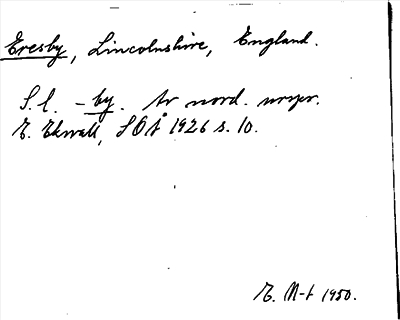 Eresby, Lincolnshire, England.
S.l. -by. Av nord. urspr.
E. Ekwall, SOÅ 1926 s. 10.
E. N-t 1950.